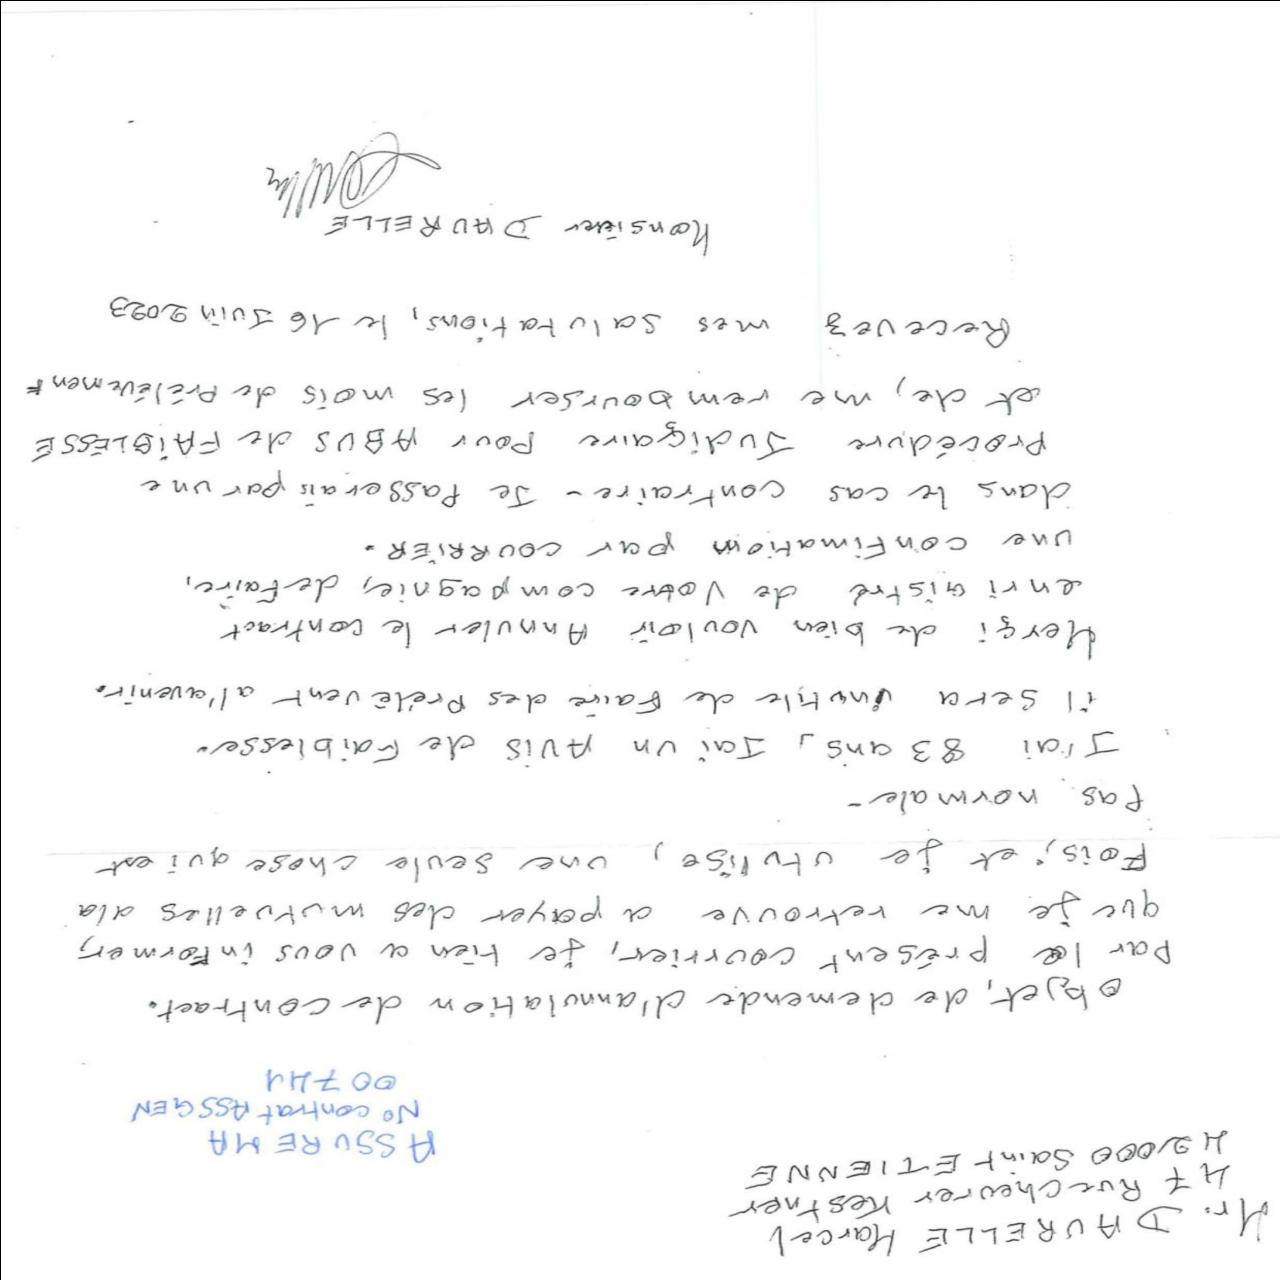 Mr. DAURELLE Marcel
47 Rue cheurer Kestner
42000 Saint ETIENNE
ASSUREMA
N° contrat ASSGEN
00744
objet, de demende d'annulation de contract.
Par le présent courrier, je tien a vous informer,
que je me retrouve a payer des mutuelles ala
Fois, et je utulise, une seule chose qui est
Pas normale-
J'ai 83 ans, J'ai un AVIS de Faiblesse.
il sera inutile de Faire des Prélèvent a l'avenir.
Merçi de bien vouloir Annuler le contract
enrigistré de Votre compagnie, de Faire,
une confimation par COURRIER.
dans le cas contraire - Je Passerais par une
Procédure Judiçaire Pour ABUS de FAIBLESSE
et de, me rembourser les mois de Prélèvement
Recevez mes salutations, le 16 Juin 2023
Monsieur DAURELLE